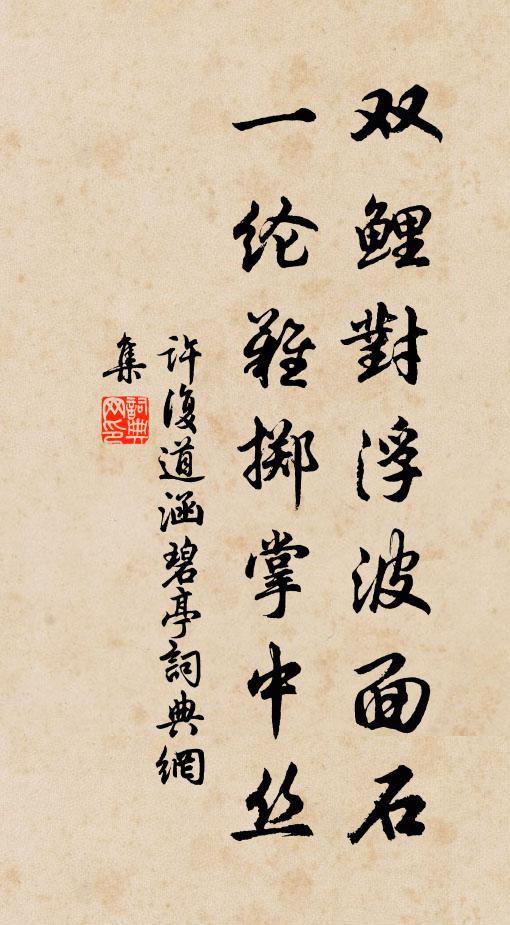 双鲤對浮波面石
一纶難掷掌中丝
許復道涵碧亭詞典網
集
詞典网印